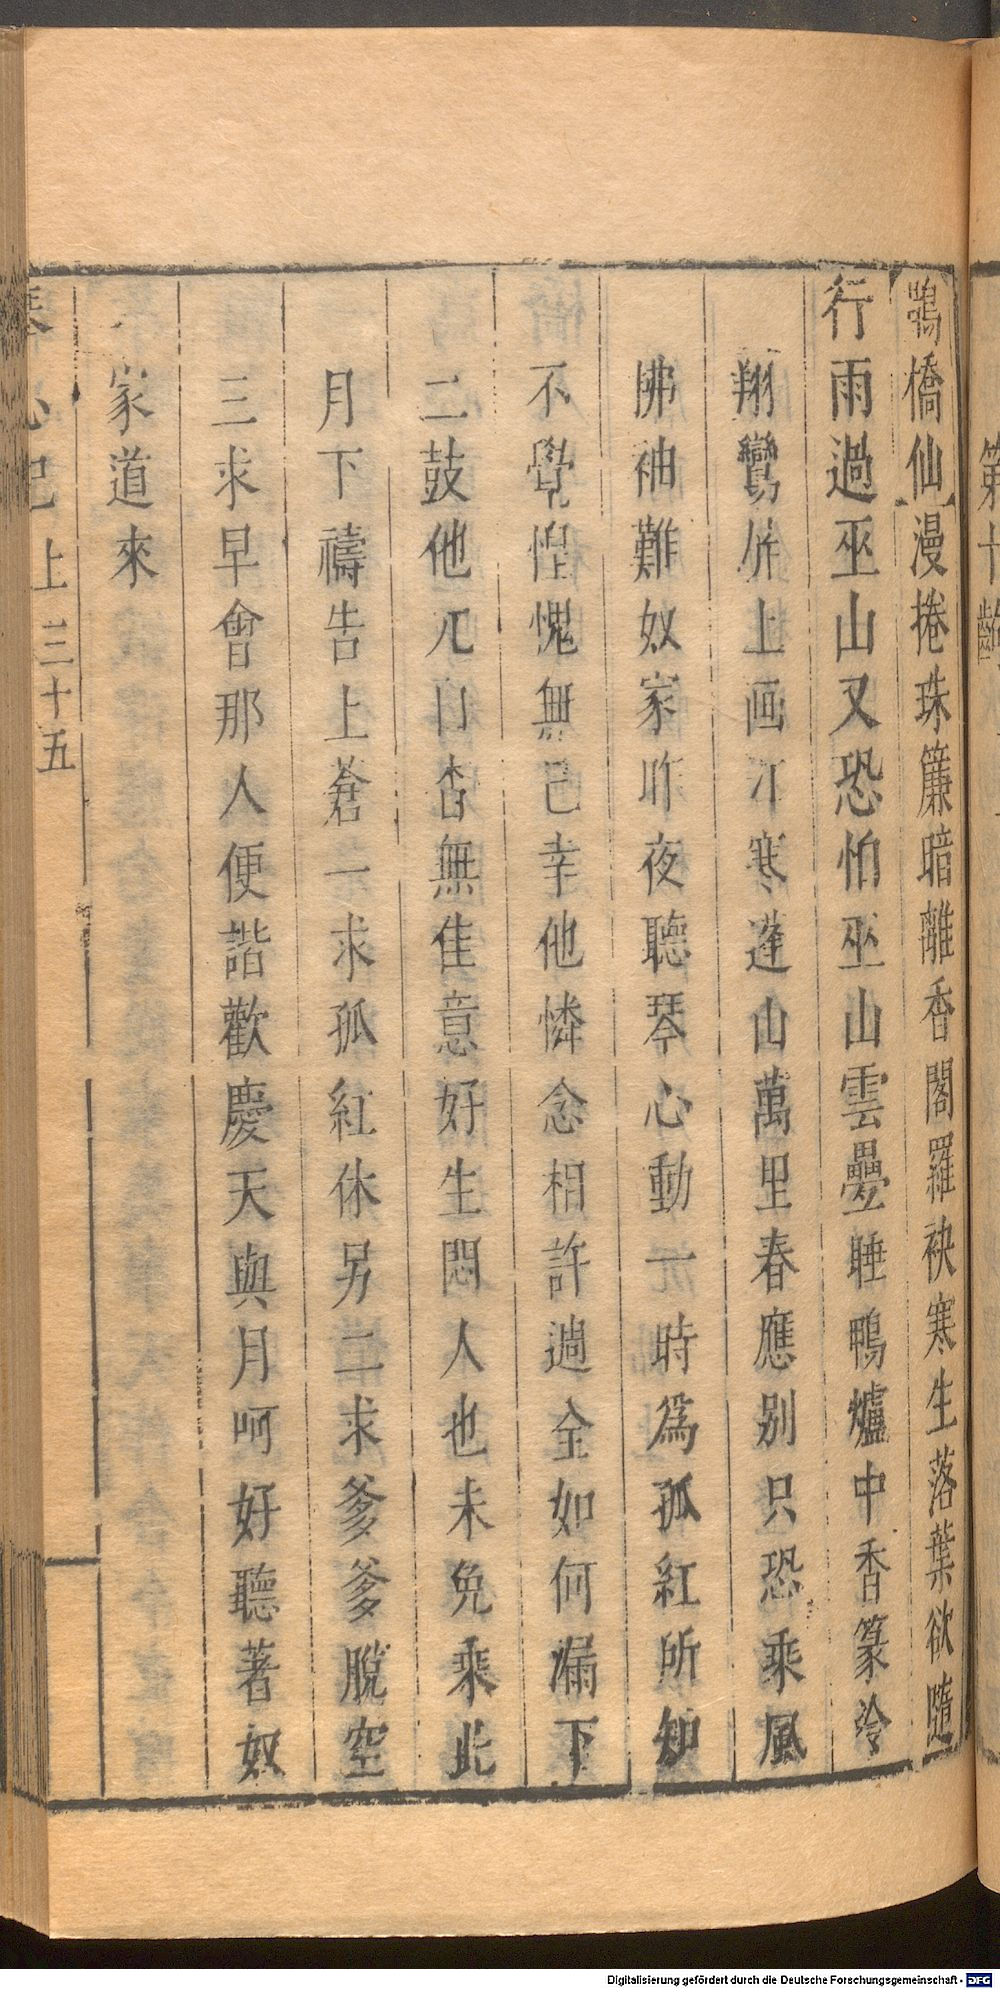 鵲橋仙漫捲珠簾暗離香閣羅袂寒生落葉欲隨
行雨過巫山又恐怕巫山雲疊睡鴨爐中香篆冷
翔鸞屏上画汀寒蓬山萬里春應别只恐乘風
拂袖難奴家昨夜聽琴心動一時為孤紅所知
不覺惶愧無已幸他憐念相許過全如何漏下
二鼓他兀自杳無佳意好生悶人也未免乘此
月下禱告上蒼一求孤紅休另二求爹爹脫空
三求早會那人便諧歡慶天與月呵好聽著奴
家道來
琴心記 上 三十五
第十齣
Digitalisierung gefördert durch die Deutsche Forschungsgemeinschaft - DFG